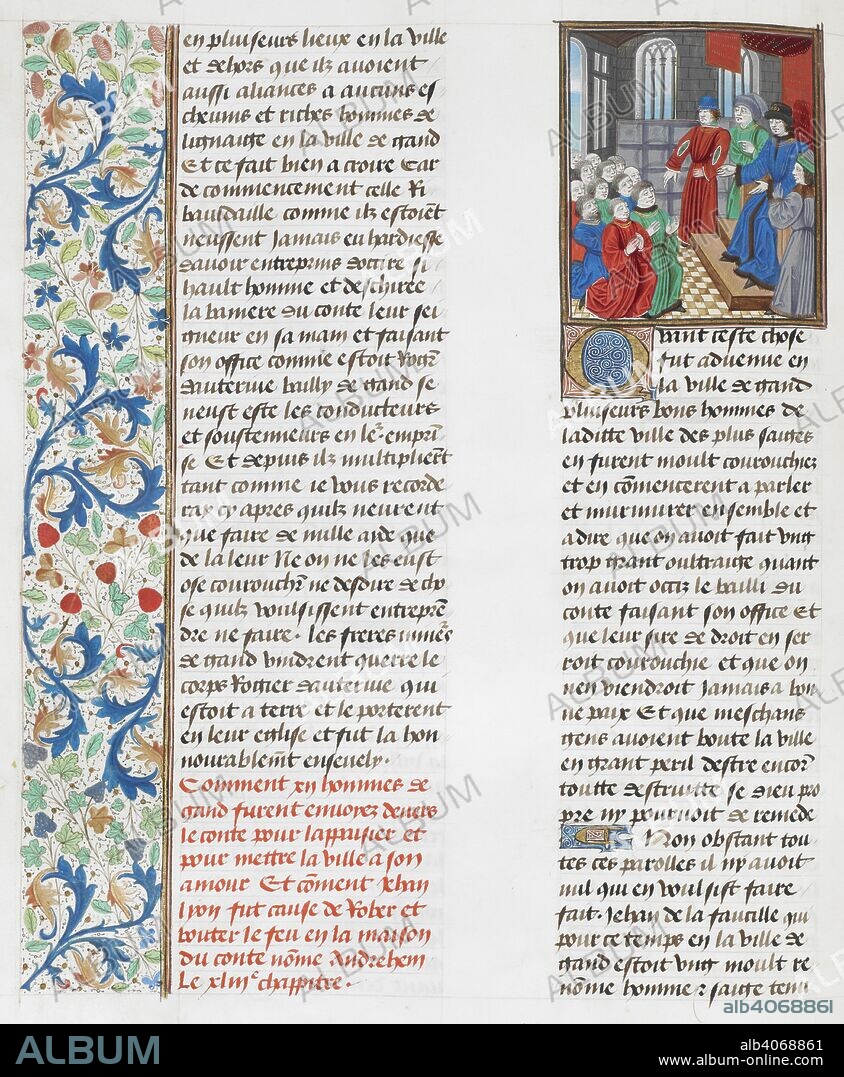 en pluiseurs lieux en la ville
et dehors que ilz avoient
aussi aliances a aucuns es
chevins et riches hommes de
lignaige en la ville de gand
Et ce fait bien a croire Car
de commencement celle Ri
bauldaille comme ilz estoient
neussent Jamais eu hardiesse
davoir entreprins doccire si
hault homme et deschiree
la baniere du conte leur sei
gneur en sa main et faisant
son office comme estoit Rogr
dauterive bailly de gand se
neust este les conducteurs
et soustenneurs en ler empri
se Et depuis ilz multiplient
tant comme ie vous recorde
ray cy apres quilz neurent
que faire de nulle aide que
de la leur Ne on ne les eust
ose courouchr ne desdire de cho
se quilz voulsissent entrepren
dre ne faire. les freres mines
de gand vindrent querre le
corps Rogier dauterive qui
estoit a terre et le porterent
en leur eglise et fut la hon
nourablemt ensevely.
Comment xij hommes de
gand furent envoyez devers
le conte pour lappaisier et
pour mettre la ville a son
amour Et coment Jehan
lyon fut cause de Rober et
bouter le feu en la maison
du conte nome Andrehem
Le xliiie chappitre.
Quant ceste chose
fut advenue en
la ville de gand
pluiseurs bons hommes de
laditte ville des plus saiges
en furent moult courouchiez
et en comencerent a parler
et murmurer ensemble et
a dire que on avoit fait ung
trop grant oultraige quant
on avoit occiz le bailli du
conte faisant son office Et
que leur sire de droit en ser
roit courouchie et que on
nen viendroit Jamais a bon
ne paix Et que meschans
gens avoient boute la ville
en grant peril destre encor
toutte destruitte se dieu pro
pre ny pourvoit de remede
Non obstant tou
tes ces parolles il ny avoit
nul qui en voulsist faire
fait. Jehan de la faucille qui
pour ce temps en la ville de
gand estoit ung moult re
nome homme z saige tenu
alb4068861
ALBUM
alb4068861
www.album-online.com